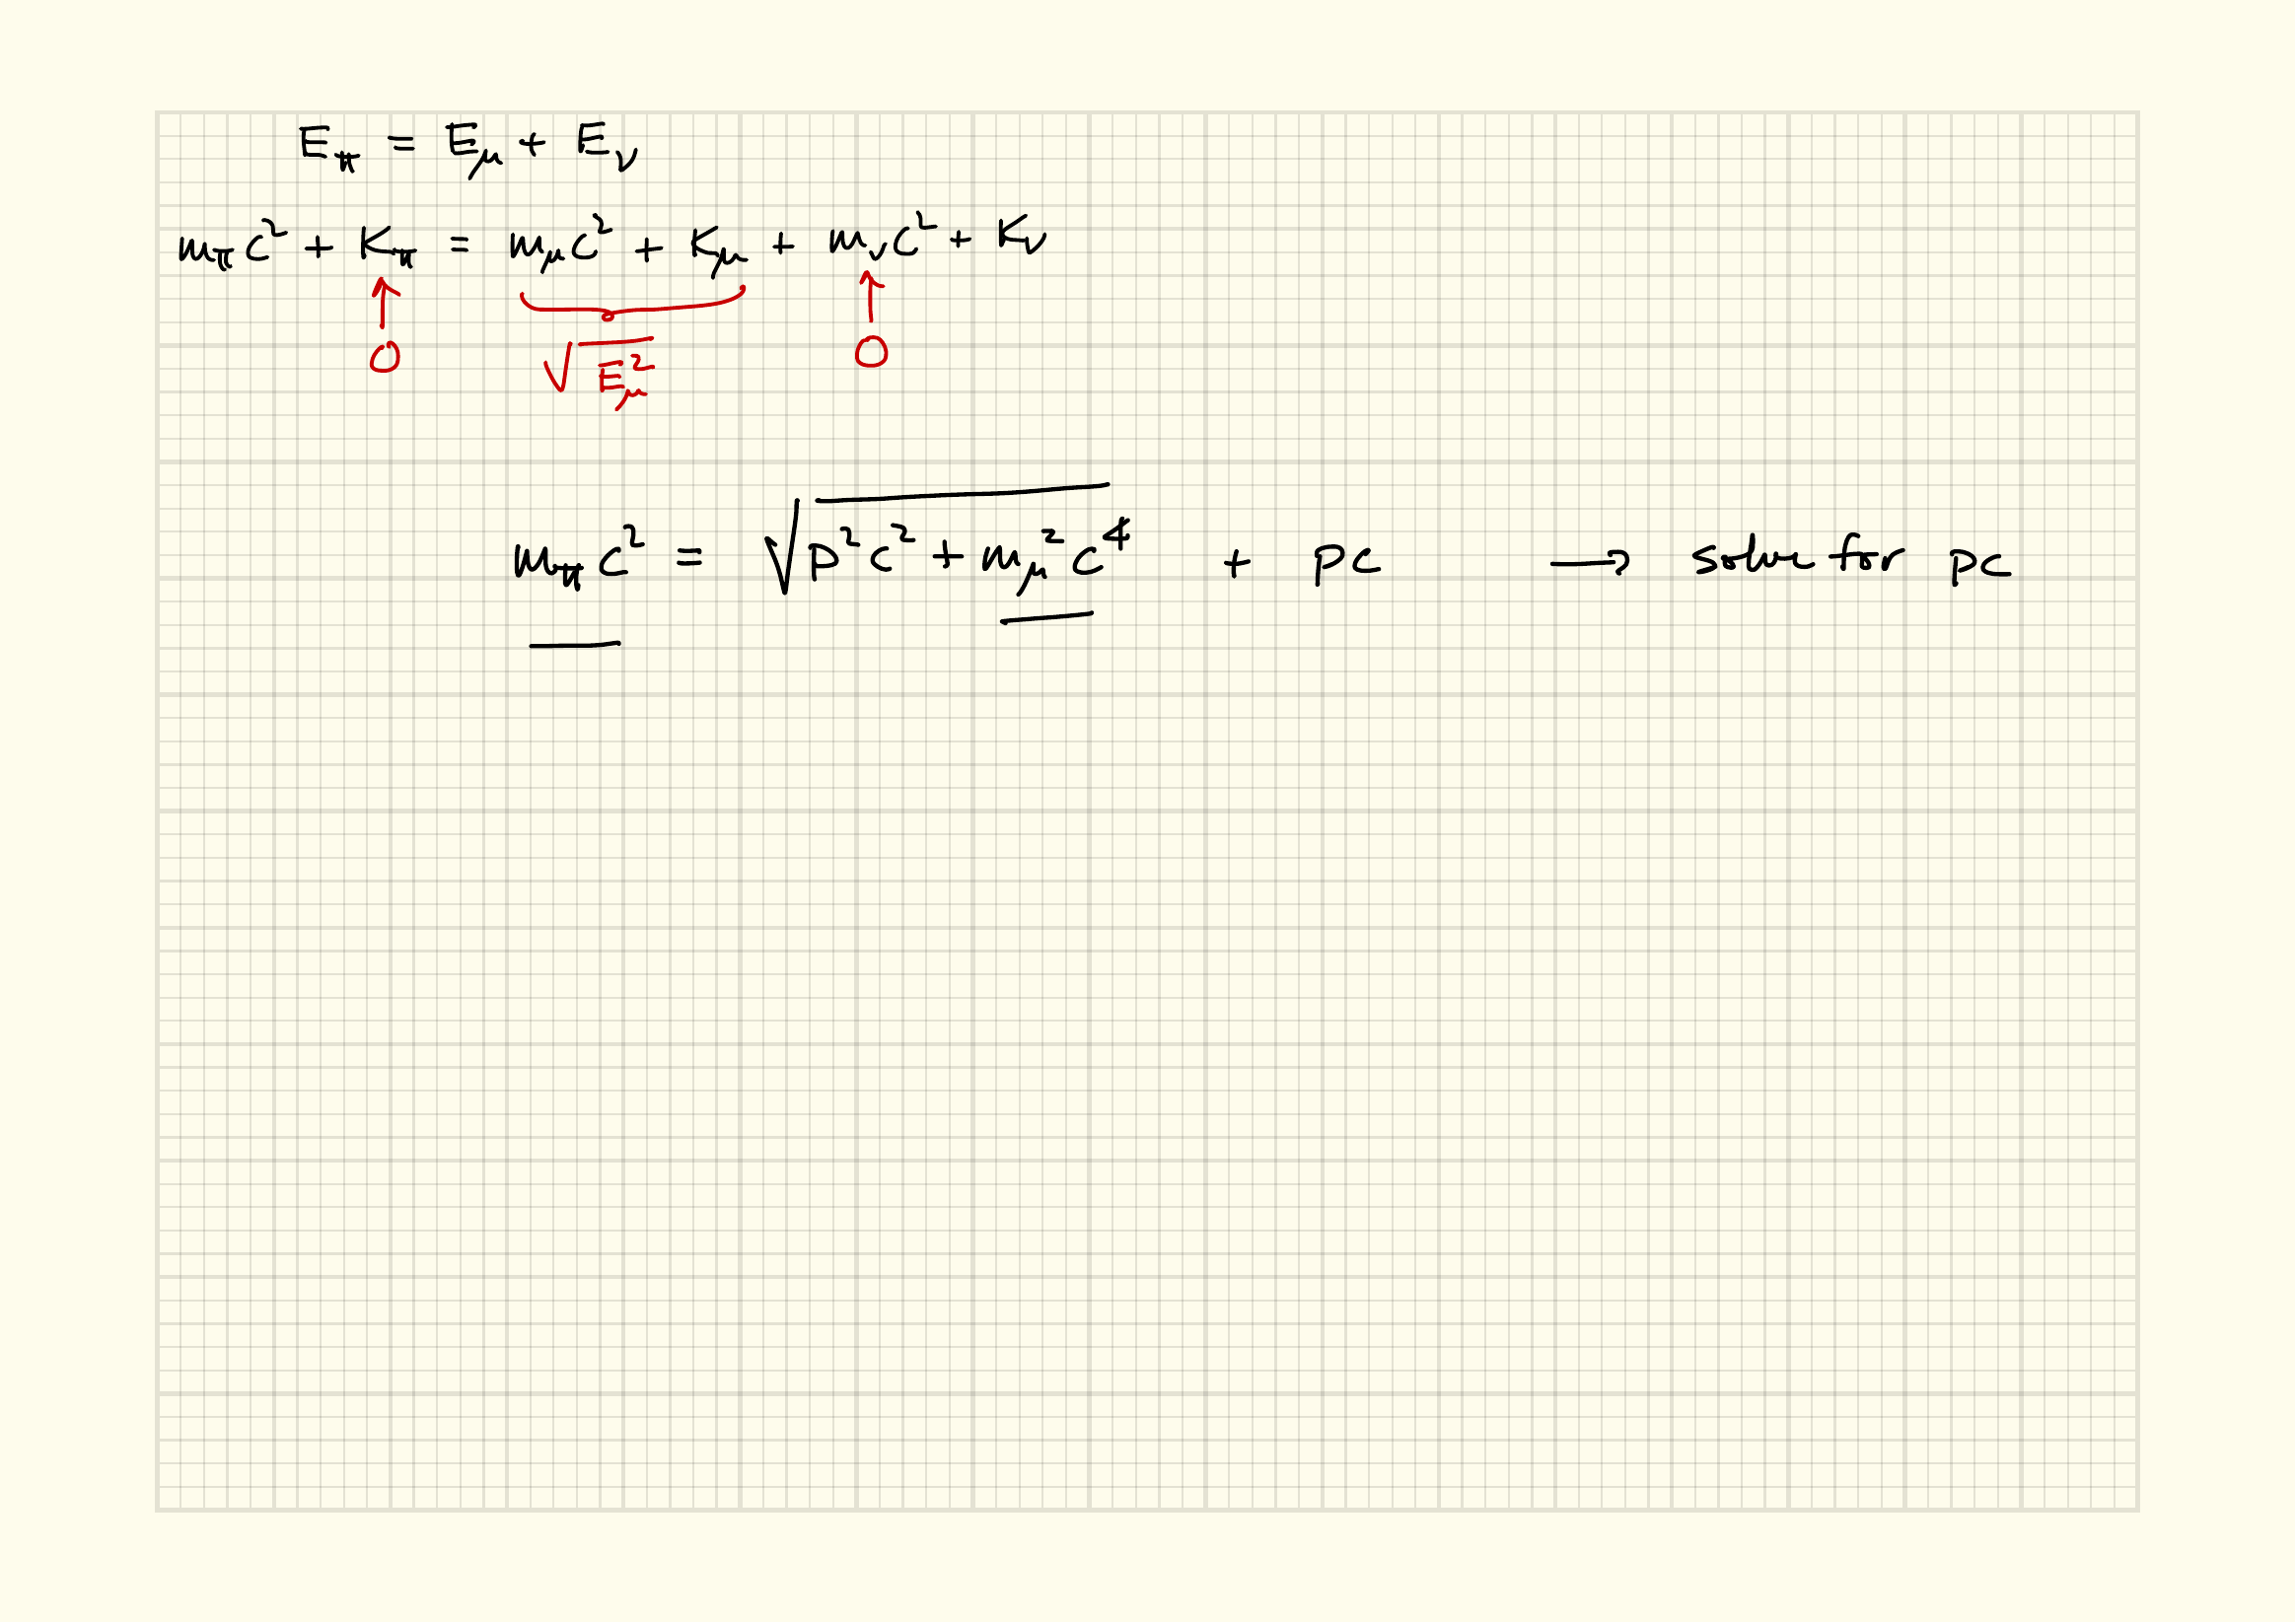 E_π = E_μ + E_ν
m_π c² + K_π = m_μ c² + K_μ + m_ν c² + K_ν
0 √E_μ² 0
m_π c² = √(p²c² + m_μ² c⁴) + pc → solve for pc